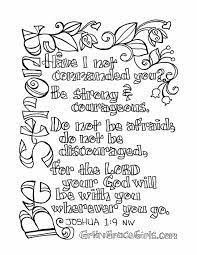 Be Strong
Have I not
commanded you?
Be strong &
courageous.
Do not be afraid;
do not be
discouraged,
for the LORD
your God will
be with you
wherever you go.
JOSHUA 1:9 NIV